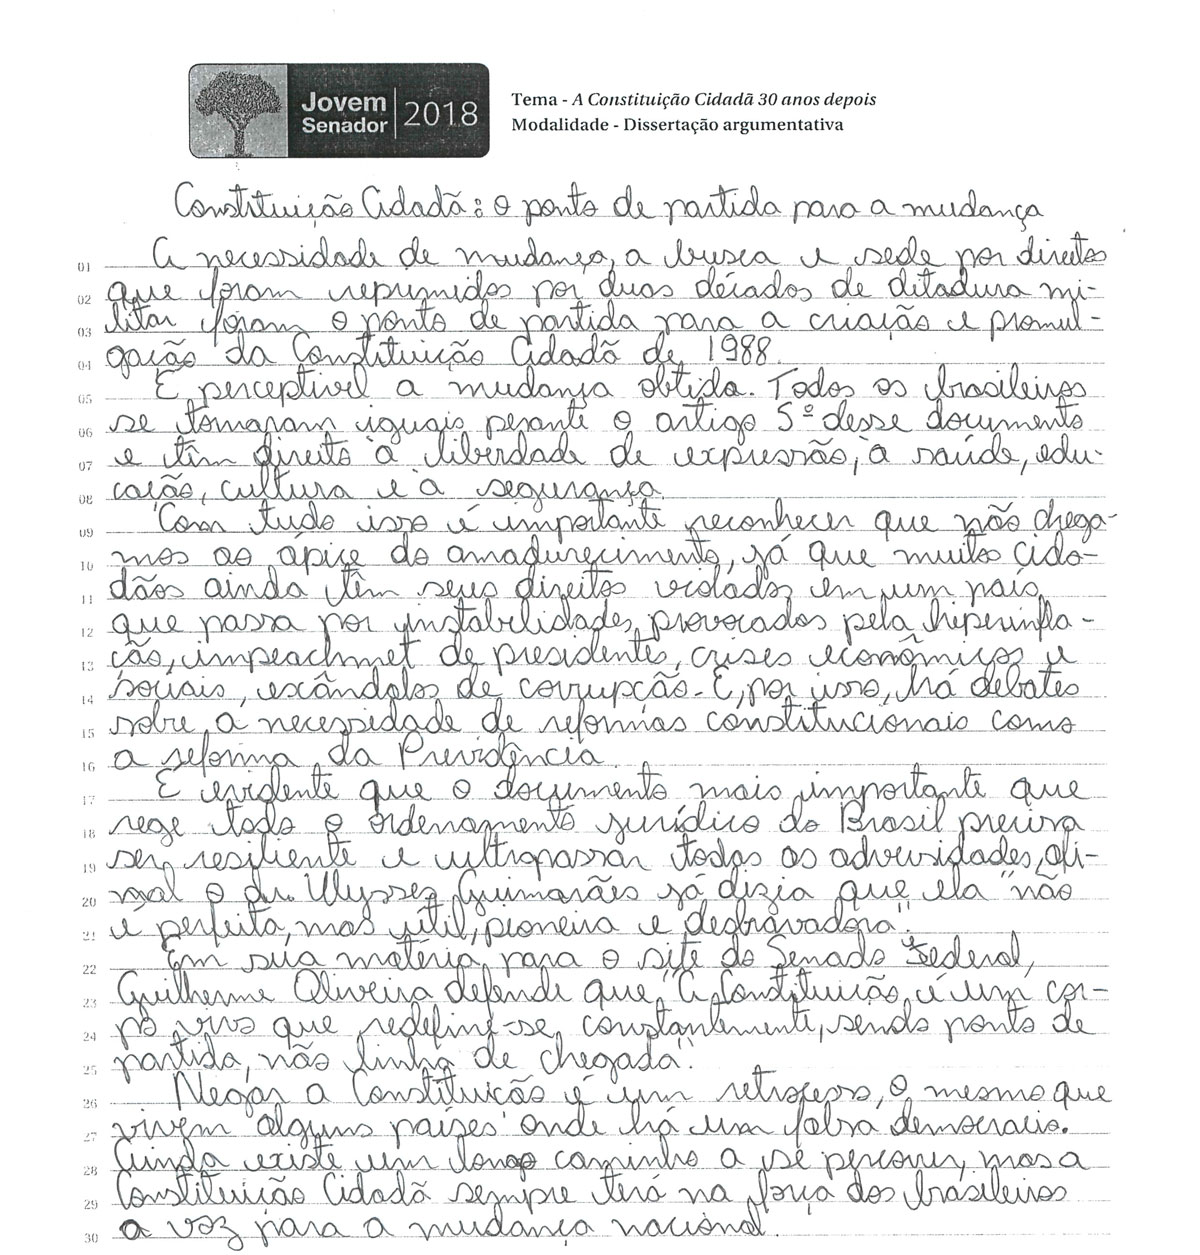 Jovem
Senador
2018
Tema - A Constituição Cidadã 30 anos depois
Modalidade - Dissertação argumentativa
Constituição Cidadã: o ponto de partida para a mudança
01 A necessidade de mudança, a busca e sede por direitos
02 que foram reprimidos por duas décadas de ditadura mi-
03 litar foram o ponto de partida para a criação e promul-
04 gação da Constituição Cidadã de 1988.
05 É perceptível a mudança obtida. Todos os brasileiros
06 se tornaram iguais perante o artigo 5º desse documento
07 e têm direito à liberdade de expressão, à saúde, edu-
08 cação, cultura e à segurança.
09 Com tudo isso é importante reconhecer que não chega-
10 mos ao ápice do amadurecimento, já que muitos cida-
11 dãos ainda têm seus direitos violados em um país
12 que passa por instabilidades provocadas pela hiperinfla-
13 ção, impeachmet de presidentes, crises econômicas e
14 sociais, escândalos de corrupção. E, por isso, há debates
15 sobre a necessidade de reformas constitucionais como
16 a reforma da Previdência.
17 É evidente que o documento mais importante que
18 rege todo o ordenamento jurídico do Brasil precisa
19 ser resiliente e ultrapassar todas as adversidades, afi-
20 nal o dr. Ulysses Guimarães já dizia que ela "não
21 é perfeita, mas útil, pioneira e desbravadora".
22 Em sua matéria para o site do Senado Federal,
23 Guilherme Oliveira defende que "A Constituição é um cor-
24 po vivo que redefine-se constantemente, sendo ponto de
25 partida, não linha de chegada".
26 Negar a Constituição é um retrocesso, o mesmo que
27 vivem alguns países onde há um falsa democracia.
28 Ainda existe um longo caminho a se percorrer, mas a
29 Constituição Cidadã sempre terá na força dos brasileiros
30 a voz para a mudança nacional.